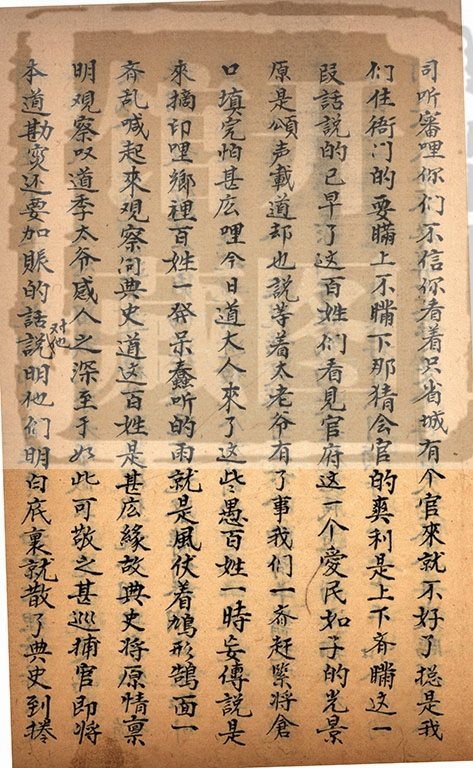 司听審哩你们不信你看着只省城有个官來就不好了摠是我
们住衙门的耍瞞上不瞞下那猜会官的奭利是上下斉瞞这一
叚話説的已早了这百姓们看見官府这一个愛民如子的光景
原是頌声載道却也説等着太老爷有了事我们一斉赶緊将倉
口填完怕甚庅哩今日道大人來了这些愚百姓一時妄傳説是
來摘印哩鄉裡百姓一發呆蠢听的雨就是風伏着鳩形鵠面一
斉乱喊起來观察问典史道这百姓是甚庅緣故典史将原情禀
明观察叹道季太爷感人之深至于如此可敬之甚巡捕官即将
本道勘灾还要加賑的話对他説明他们明白底裏就散了典史到捧